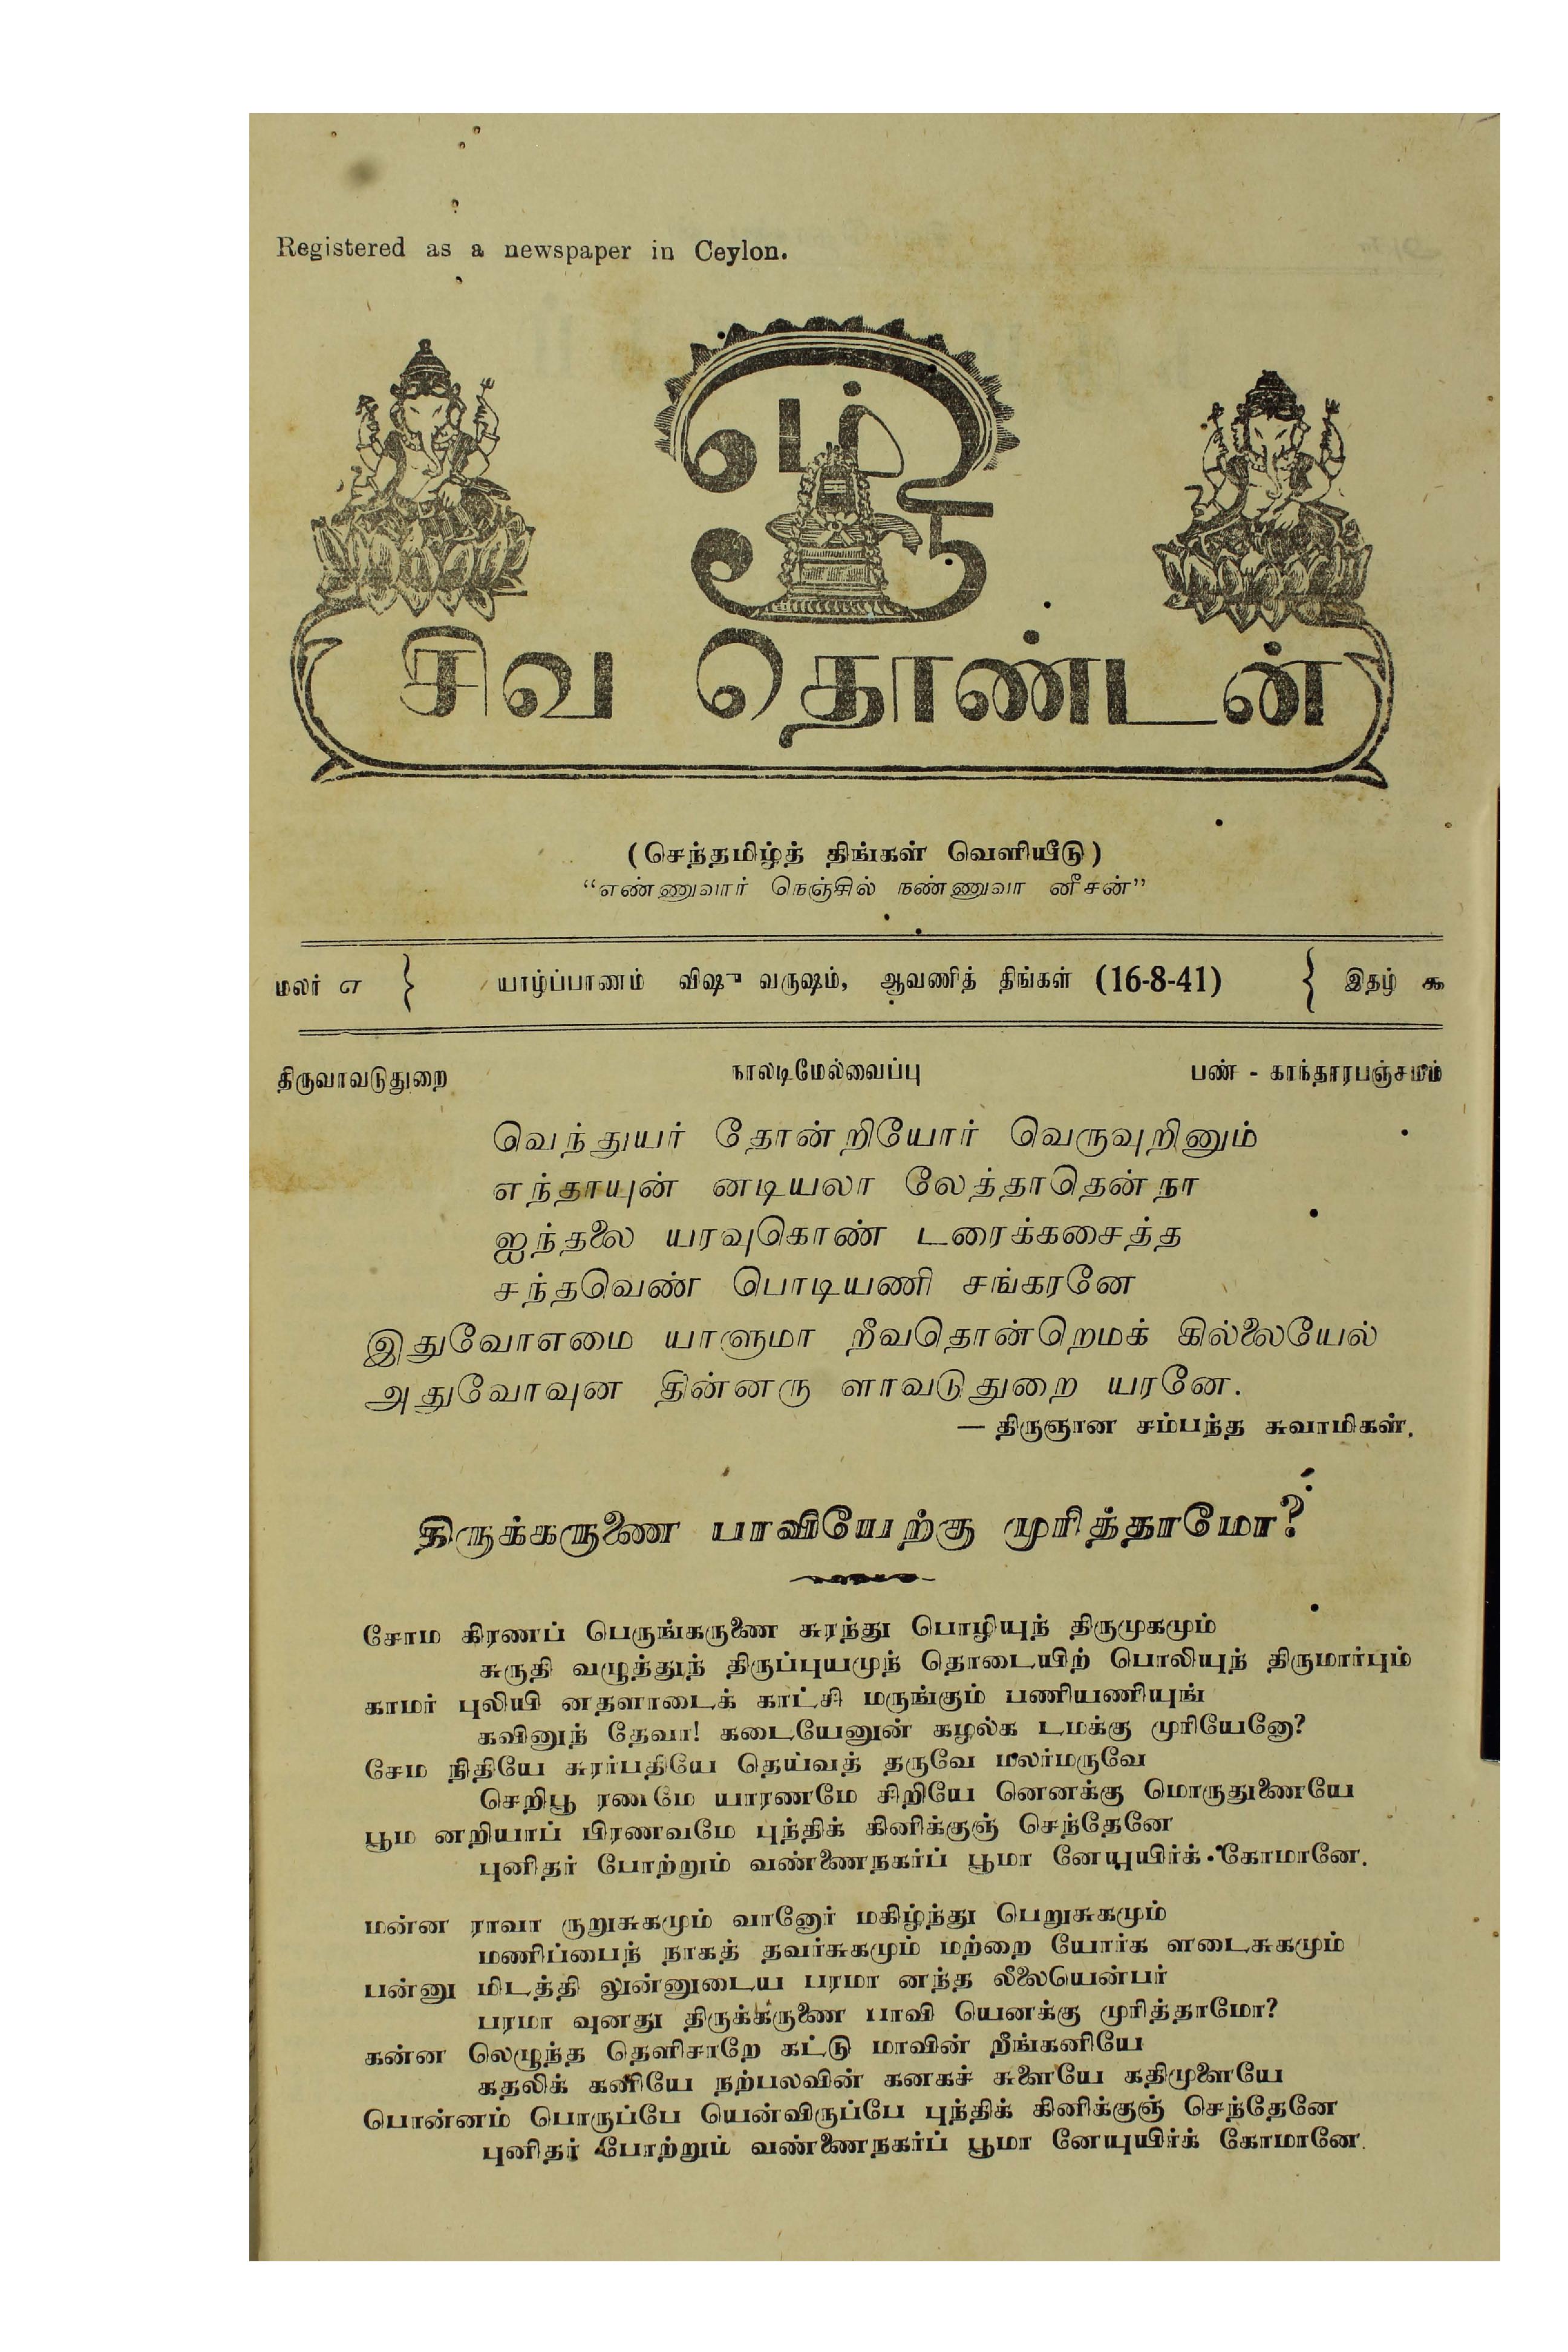 Registered as a newspaper in Ceylon.
ஓம்
சிவ தொண்டன்
(செந்தமிழ்த் திங்கள் வெளியீடு)
“எண்ணுவார் நெஞ்சில் நண்ணுவா னீசன்”
மலர் ௭ } யாழ்ப்பாணம் விஷு வருஷம், ஆவணித் திங்கள் (16-8-41) { இதழ் ௯
திருவாவடுதுறை நாலடிமேல்வைப்பு பண் - காந்தாரபஞ்சமம்
வெந்துயர் தோன்றியோர் வெருவுறினும்
எந்தாயுன் னடியலா லேத்தாதென்நா
ஐந்தலை யரவுகொண் டரைக்கசைத்த
சந்தவெண் பொடியணி சங்கரனே
இதுவோஎமை யாளுமா றீவதொன்றெமக் கில்லையேல்
அதுவோவுன தின்னரு ளாவடுதுறை யரனே.
— திருஞான சம்பந்த சுவாமிகள்.
திருக்கருணை பாவியேற்கு முரித்தாமோ?
சோம கிரணப் பெருங்கருணை சுரந்து பொழியுந் திருமுகமும்
சுருதி வழுத்துந் திருப்புயமுந் தொடையிற் பொலியுந் திருமார்பும்
காமர் புலியி னதளாடைக் காட்சி மருங்கும் பணியணியுங்
கவினுந் தேவா! கடையேனுன் கழல்க டமக்கு முரியேனோ?
சேம நிதியே சுரர்பதியே தெய்வத் தருவே மலர்மருவே
செறிபூ ரணமே யாரணமே சிறியே னெனக்கு மொருதுணையே
பூம னறியாப் பிரணவமே புந்திக் கினிக்குஞ் செந்தேனே
புனிதர் போற்றும் வண்ணைநகர்ப் பூமா னேயுயிர்க் கோமானே.
மன்ன ராவா ருறுசுகமும் வானோர் மகிழ்ந்து பெறுசுகமும்
மணிப்பைந் நாகத் தவர்சுகமும் மற்றை யோர்க ளடைசுகமும்
பன்னு மிடத்தி லுன்னுடைய பரமா னந்த லீலையென்பர்
பரமா வுனது திருக்கருணை பாவி யெனக்கு முரித்தாமோ?
கன்ன லெழுந்த தெளிசாறே கட்டு மாவின் றீங்கனியே
கதலிக் கனியே நற்பலவின் கனகச் சுளையே கதிமுளையே
பொன்னம் பொருப்பே யென்விருப்பே புந்திக் கினிக்குஞ் செந்தேனே
புனிதர் போற்றும் வண்ணைநகர்ப் பூமா னேயுயிர்க் கோமானே.